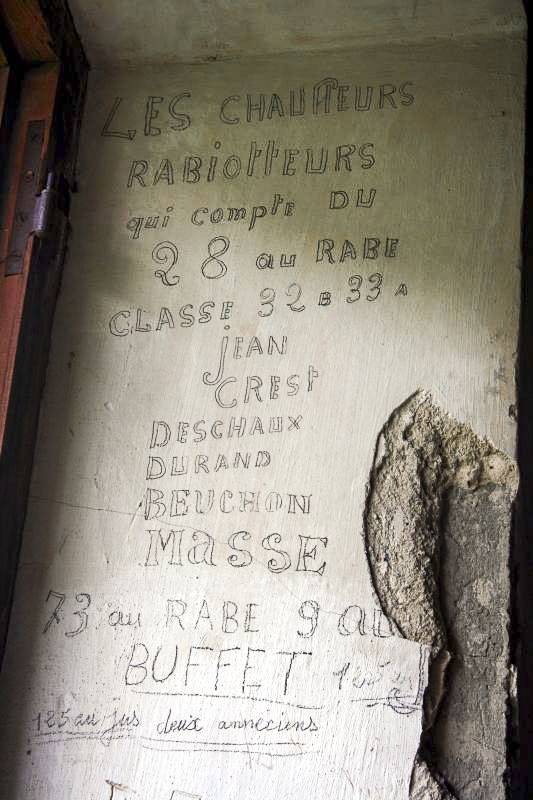 LES CHAUffEURS
RABiottEURS
qui comptE DU
28 au RABE
CLASSE 32 B 33 A
jEAN
CRESt
DESCHAUX
DURAND
BEUCHON
MaSSE
73 au RABE 9 au
BUFFET
125 au jus deux anneciens